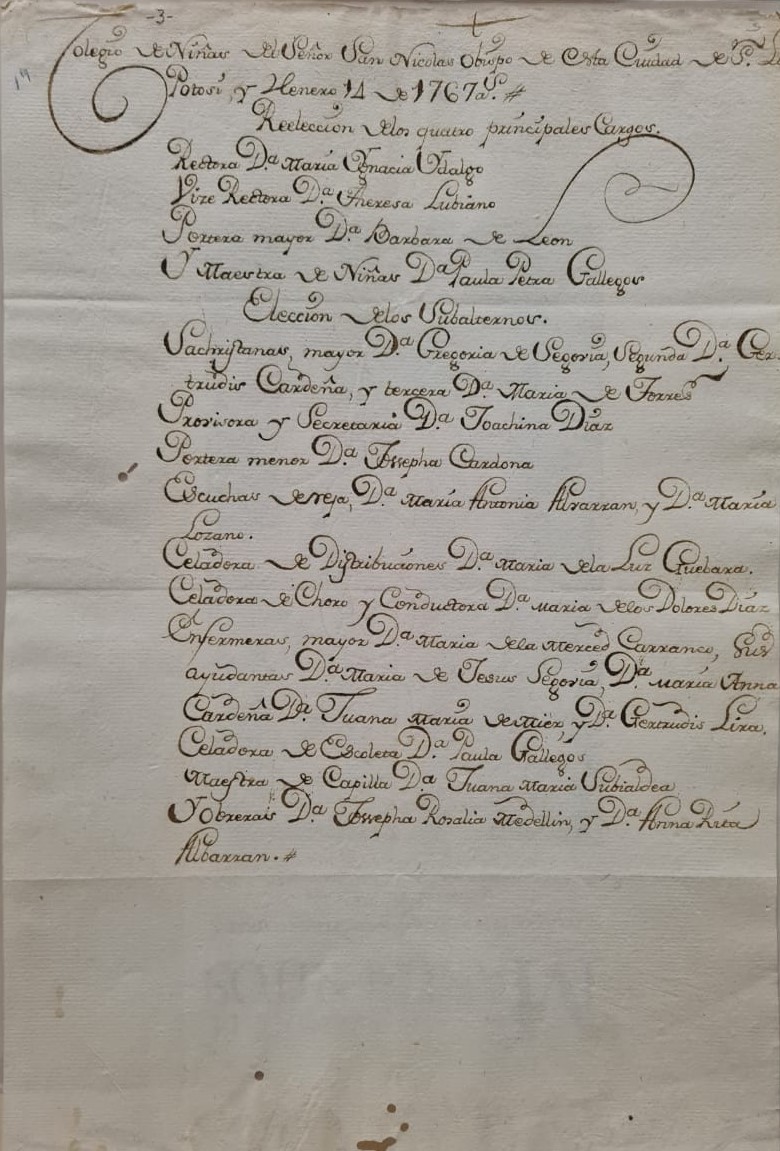 -3-
Colegio de Niñas del Señor San Nicolas Obispo de esta Ciudad de S.
Potosi, y Henero 14 de 1767 a.s #
Reeleccion de los quatro principales Cargos.
Rectora D.a Maria Ygnacia Ydalgo
Vize Rectora D.a Theresa Lubiano
Portera mayor D.a Barbara de Leon
Y Maestra de Niñas D.a Paula Petra Gallegos
Eleccion delos Subalternos.
Sachristanas, mayor D.a Gregoria de Segovia, Segunda D.a Ger-
trudis Cardeña, y tercera D.a Maria de Torres
Provisora y Secretaria D.a Joachina Diaz
Portera menor D.a Josepha Cardona
Escuchas de reja, D.a Maria Antonia Alvarran, y D.a Maria
Lozano.
Celadora de Distribuciones D.a Maria dela Luz Guebara.
Celadora de Choro y Conductora D.a Maria delos Dolores Diaz
Enfermeras, mayor D.a Maria dela Merced Carranco, sus
ayudantas D.a Maria de Jesus Segovia, D.a Maria Anna
Cardeña D.a Juana Maria de Mier, y D.a Gertrudis Lira.
Celadora de Escoleta D.a Paula Gallegos
Maestra de Capilla D.a Juana Maria Subialdea
Y Obreras D.a Josepha Rosalia Medellin, y D.a Anna Rita
Albarran. #